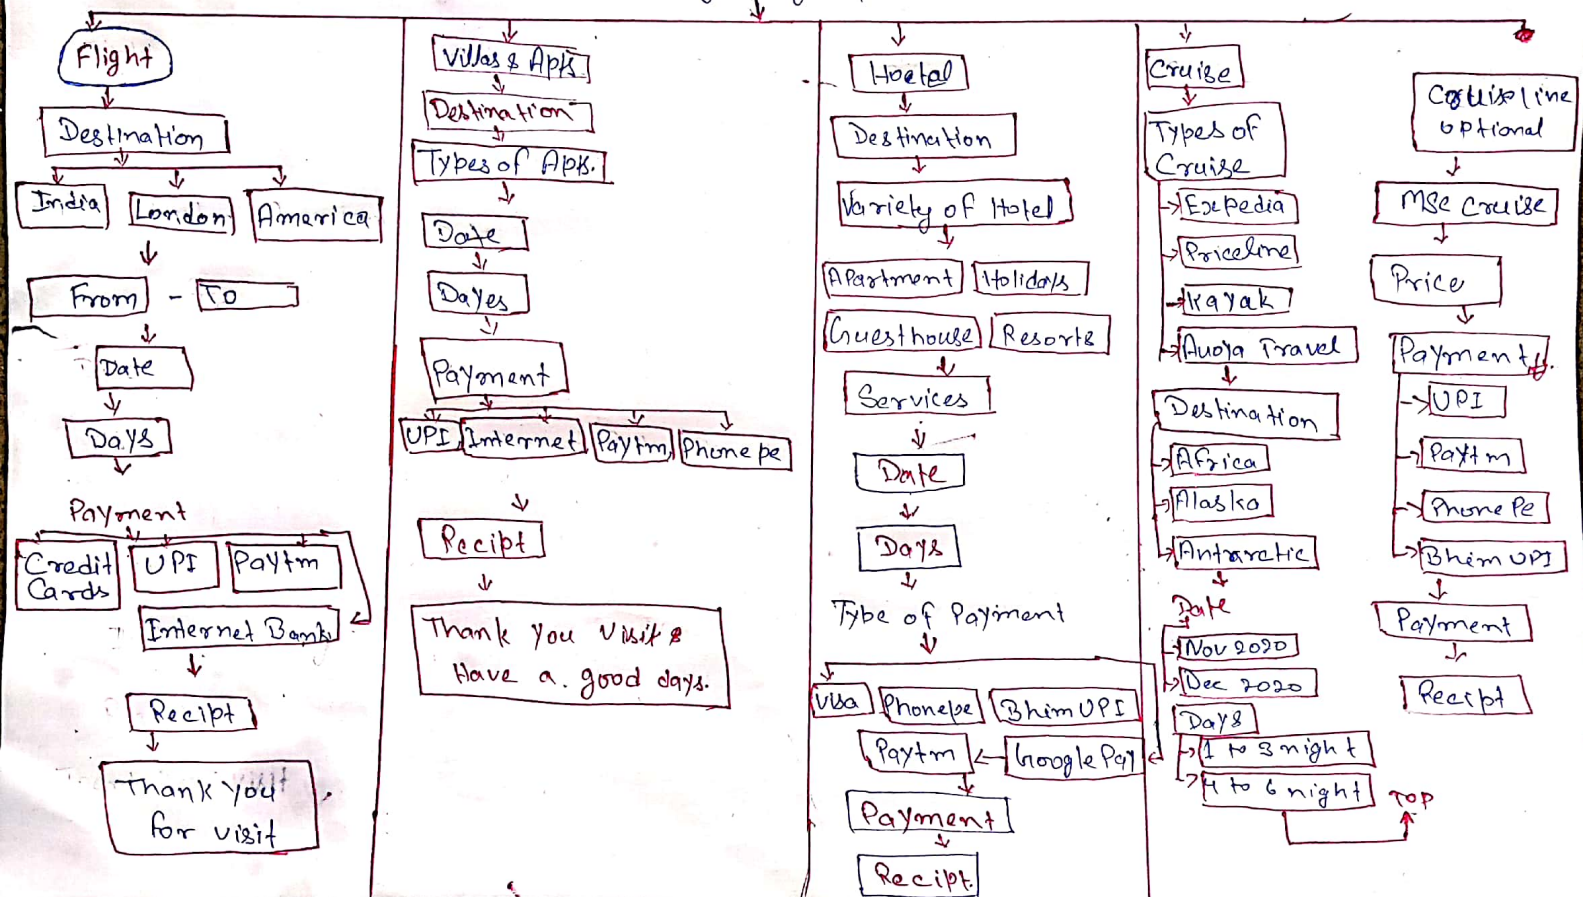 Flight
Destination
India London America
From - To
Date
Days
Payment
Credit UPI Paytm
Cards
Internet Bank
Recipt
Thank you
for visit
Villas & Apts.
Destination
Types of Apts.
Date
Dayes
Payment
UPI Internet Paytm Phone pe
Recipt
Thank you visit &
Have a good days.
Hoetal
Destination
Variety of Hotel
Apartment Holidays
Guesthouse Resorts
Services
Date
Days
Type of Payiment
Visa Phonepe Bhim UPI
Paytm Google Pay
Payment
Recipt.
Cruise
Types of
Cruise
Expedia
Priceline
Kayak
Auoya Travel
Destination
Africa
Alaska
Antarctic
Date
Nov 2020
Dec 2020
Days
1 to 3 night
4 to 6 night
TOP
optional
MSC Cruise
Price
Payment
UPI
Paytm
Phone Pe
Bhim UPI
Payment
Recipt